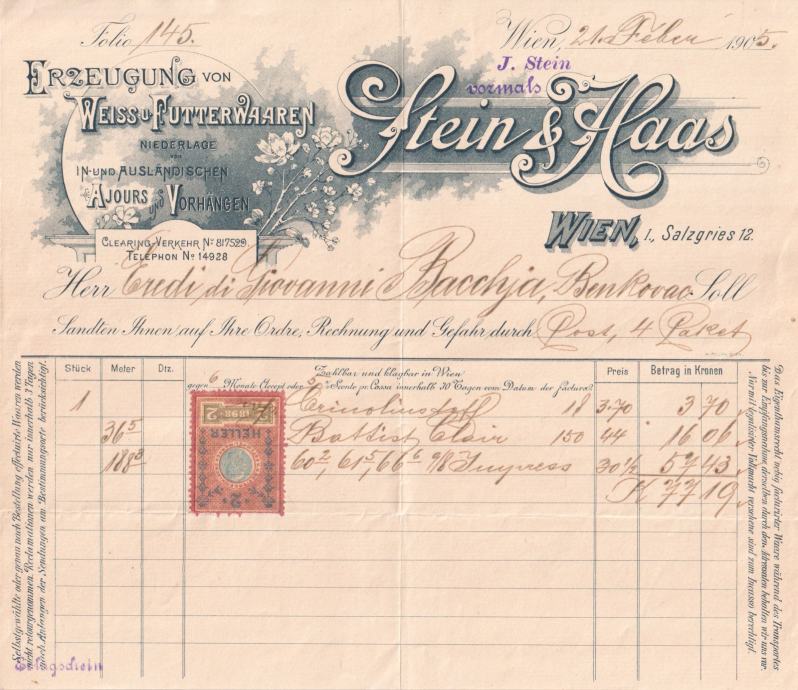 Folio 145.
Wien, 21. Feber 1905.
J. Stein
vormals
Stein & Haas
WIEN, I., Salzgries 12.
ERZEUGUNG VON
WEISS U. FUTTERWAAREN
NIEDERLAGE
VON
IN- UND AUSLÄNDISCHEN
AJOURS UND VORHÄNGEN
CLEARING-VERKEHR No 817529.
TELEPHON No 14928
Herr Eredi di Giovanni Bacchja, Benkovac Soll
Sandten Ihnen auf Ihre Ordre, Rechnung und Gefahr durch Post, 4 Paket
Stück Meter Dtz. Zahlbar und klagbar in Wien Preis Betrag in Kronen
gegen 6 Monate Accept oder 2% Sconto pr. Cassa innerhalb 30 Tagen vom Datum der factura
1 Crinolinstoff 18 3.70 3 70
36 5 Battist Clair 150 44 16 06
188 3 60 2, 61 5, 66 6 9/8 Impress 30 1/2 57 43
K 77 19
2 1898 2
HELLER
2
Selbstgewählte oder genau nach Bestellung effectuirte Waaren werden
nicht retourgenommen. Reclamationen werden nur innerhalb 3 Tagen
nach Anlangen der Sendungen am Bestimmungsorte berücksichtigt.
Das Eigenthumsrecht nebig facturirter Waare während des Transportes
bis zur Empfangnahme derselben durch den Adressaten behalten wir uns vor.
Nur mit legalisirter Vollmacht versehene sind zum Incasso berechtigt.
Erlagschein